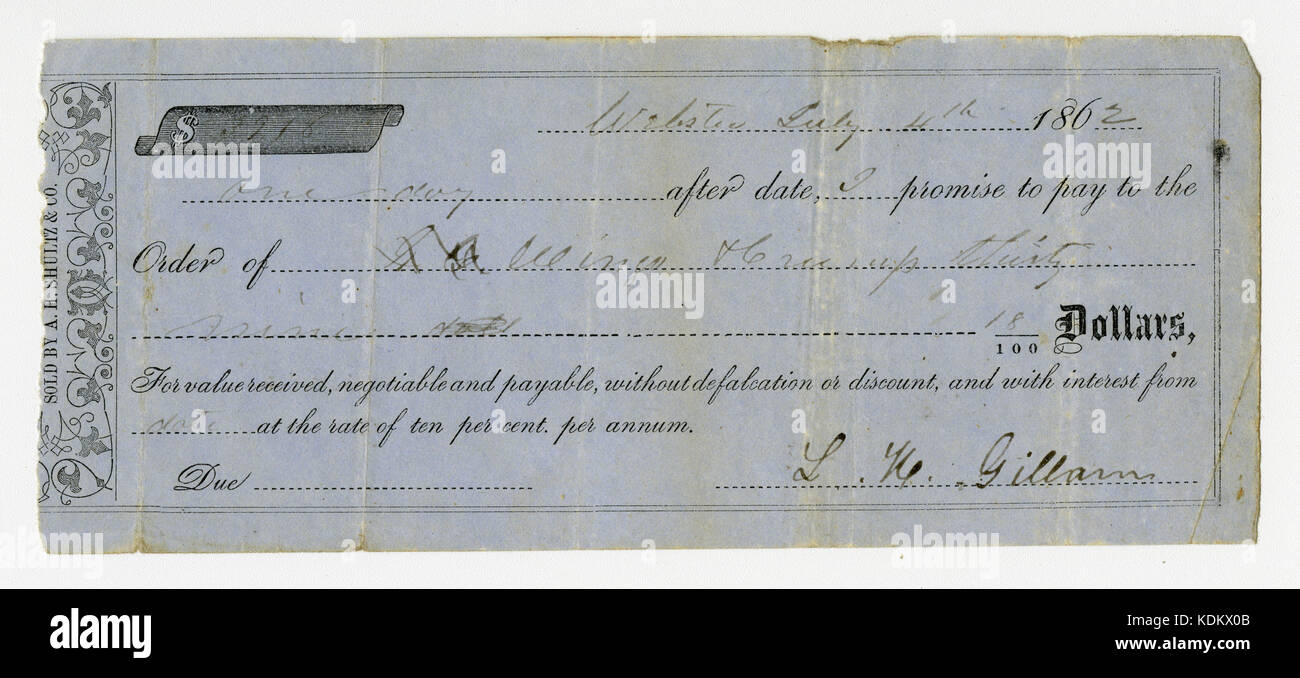 SOLD BY A. H. SHULTZ & CO.
$ 3918
Webster July 4th 1862
one day after date, I promise to pay to the
Order of Mingo thirty
nine 18/100 Dollars,
For value received, negotiable and payable, without defalcation or discount, and with interest from
date at the rate of ten per cent. per annum.
Due L. H. Gillam
alamy
alamy
Image ID: KDKX0B
www.alamy.com